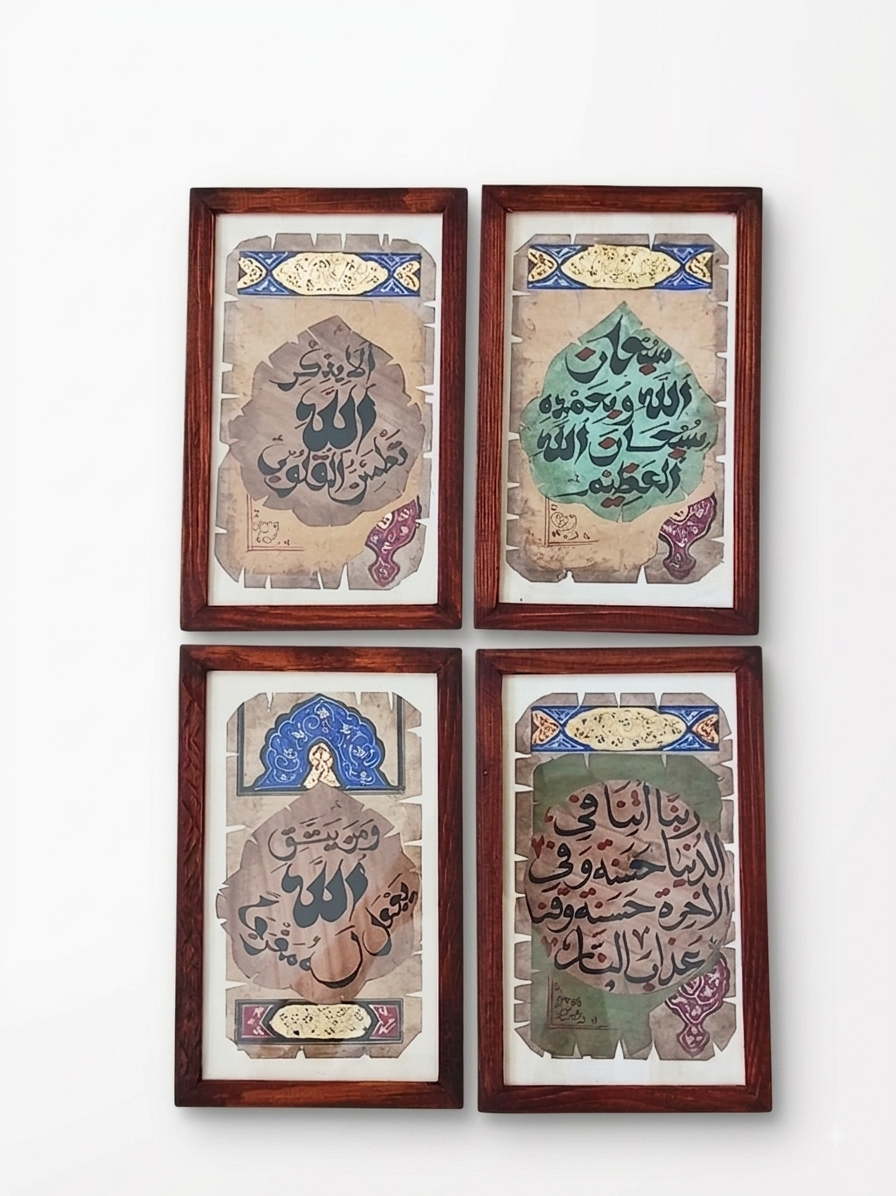 ألا بذكر
الله
تطمئن القلوب
سبحان
الله وبحمده
سبحان الله
العظيم
ومن يتق
الله
يجعل له مخرجا
ربنا اتنا في
الدنيا حسنة وفي
الآخرة حسنة وقنا
عذاب النار